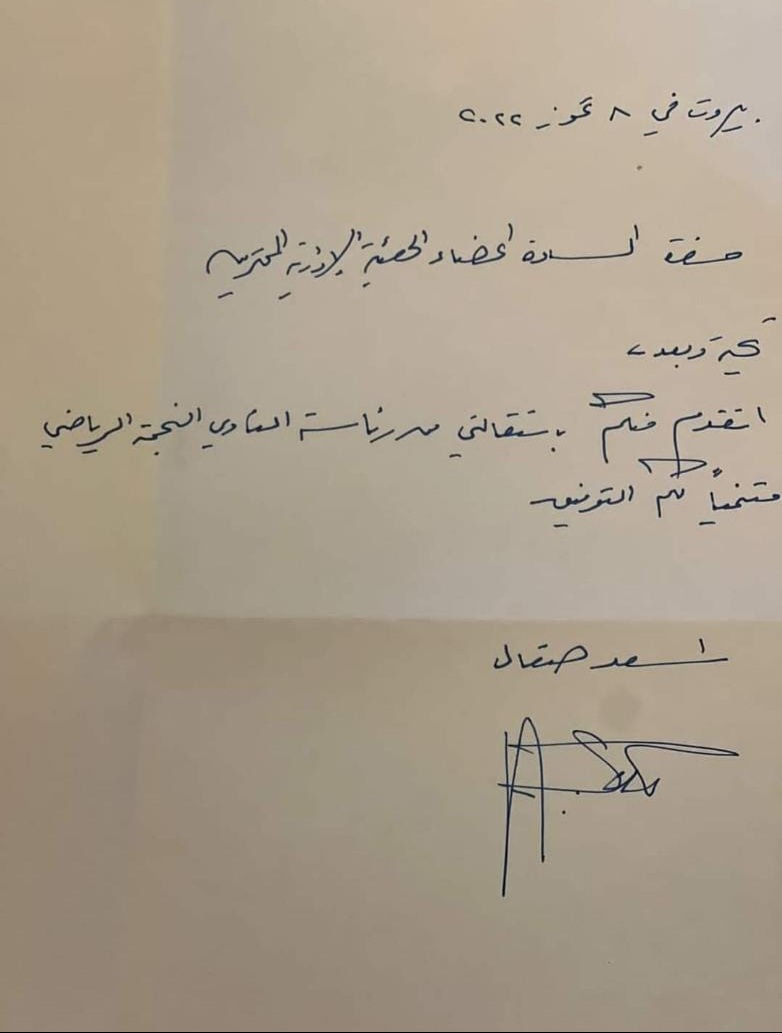 بيروت في ٨ تموز ٢٠٢٢
حضرة السادة أعضاء الهيئة الإدارية المحترمين
تحية وبعد،
اتقدم منكم باستقالتي من رئاسة النادي النجمة الرياضي
متمنياً لكم التوفيق
اسعد صقال